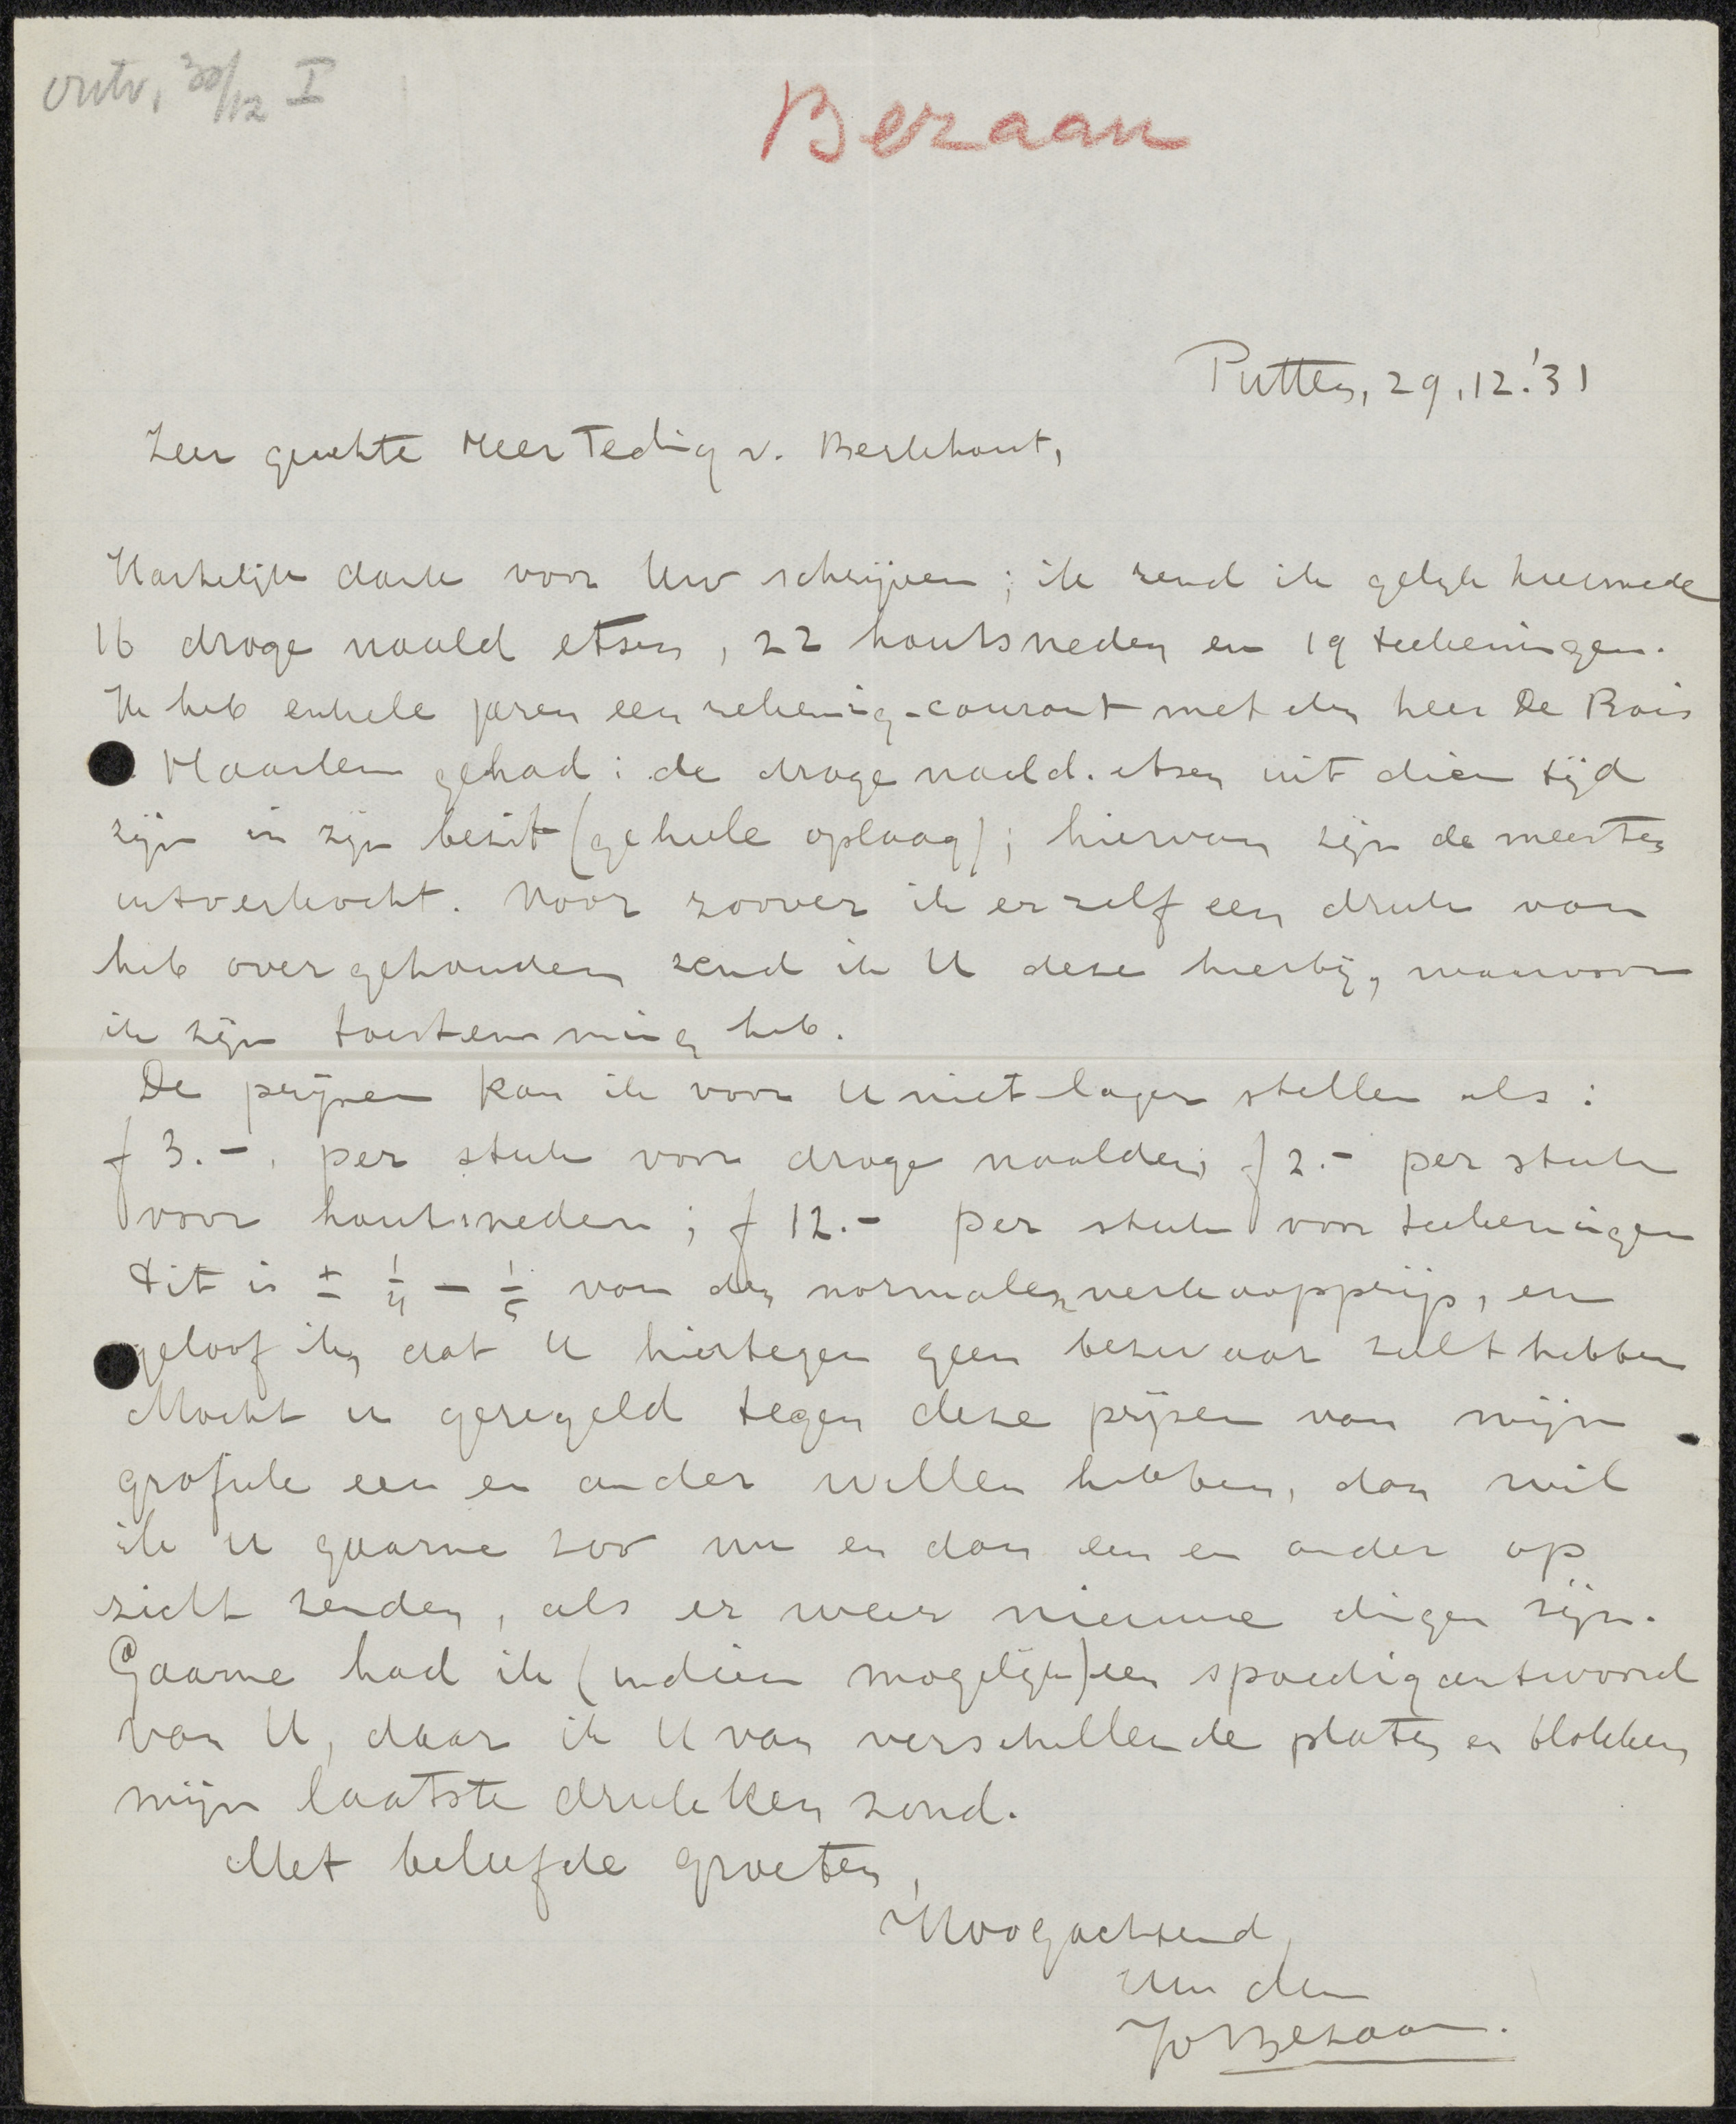 ontv. 30/12 I
Bezaan
Putten, 29.12.'31
Zeer geachte Heer Teding v. Berkhout,
Hartelijk dank voor Uw schrijven; ik zend ik gelijk hiermede
16 droge naald etsen, 22 houtsneden en 19 teekeningen.
Ik heb enkele jaren een rekening-courant met den heer De Bois
Haarlem gehad: de droge naald. etsen uit dien tijd
zijn in zijn bezit (geheele oplaag); hiervan zijn de meesten
uitverkocht. Voor zoover ik er zelf een druk van
heb overgehouden zend ik U deze hierbij, waarvoor
ik zijn toestemming heb.
De prijzen kan ik voor U niet lager stellen als:
f 3.-. per stuk voor droge naalden; f 2.- per stuk
voor houtsneden; f 12.- per stuk voor teekeningen
dit is ± 1/4 - 1/5 van den normalen verkoopprijs, en
geloof ik, dat U hiertegen geen bezwaar zult hebben
Mocht u geregeld tegen deze prijzen van mijn
grafiek een en ander willen hebben, dan wil
ik U gaarne zoo nu en dan een en ander op
zicht zenden, als er weer nieuwe dingen zijn.
Gaarne had ik (indien mogelijk) een spoedig antwoord
van U, daar ik U van verschillende platen en blokken
mijn laatste drukken zond.
Met beleefde groeten,
Hoogachtend,
Uw dw
Jo Bezaan.